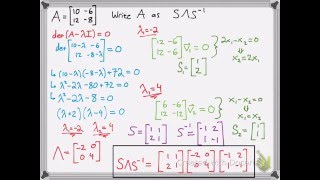 A = [10 -6; 12 -8] Write A as SΛS⁻¹
det(A-λI)=0
det [10-λ -6; 12 -8-λ] = 0
↳ (10-λ)(-8-λ)+72=0
↳ λ²-2λ-80+72=0
↳ λ²-2λ-8=0
(λ+2)(λ-4)=0
λ₁=-2 λ₂=4
Λ = [-2 0; 0 4]
λ₁=-2
[12 -6; 12 -6] v⃗₁ = 0
2x₁-x₂=0
→ x₂=2x₁
S₁ = [1; 2]
λ₂=4
[6 -6; 12 -12] v⃗₂ = 0
x₁-x₂=0
→ x₁=x₂
S = [1 1; 2 1] S⁻¹ = [-1 1; 2 -1] S₂ = [1; 1]
SΛS⁻¹ = [1 1; 2 1] [-2 0; 0 4] [-1 1; 2 -1]